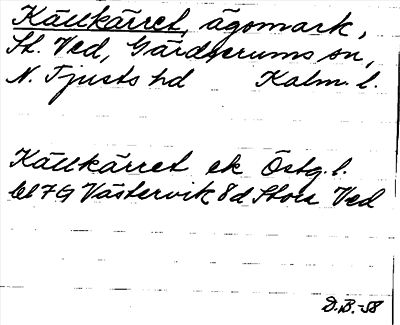 Källkärret, ägomark,
St. Ved, Gärdserums sn,
N. Tjusts hd Kalm. l.
Källkärret ek Östg. l.
bl 7G Västervik 8d Stora Ved
D.B.-58